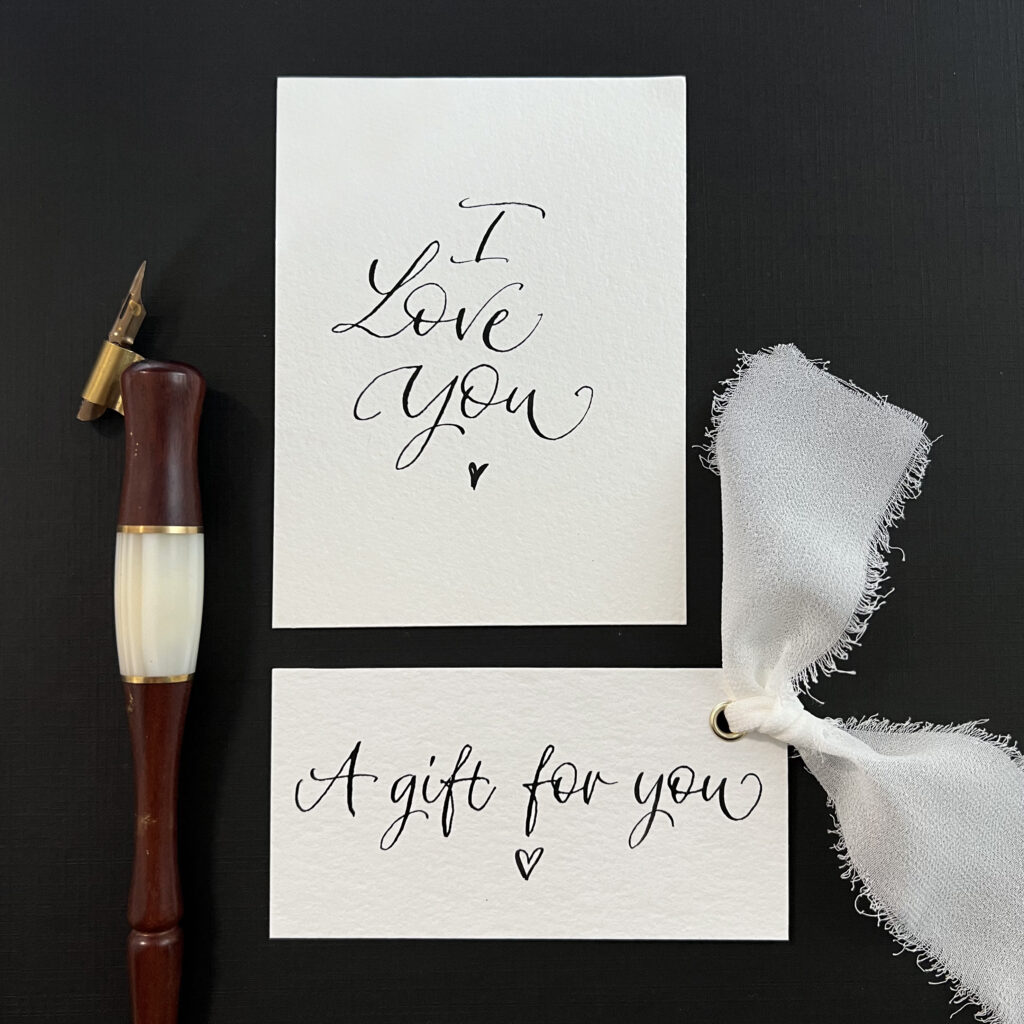 I
Love
you
A gift for you